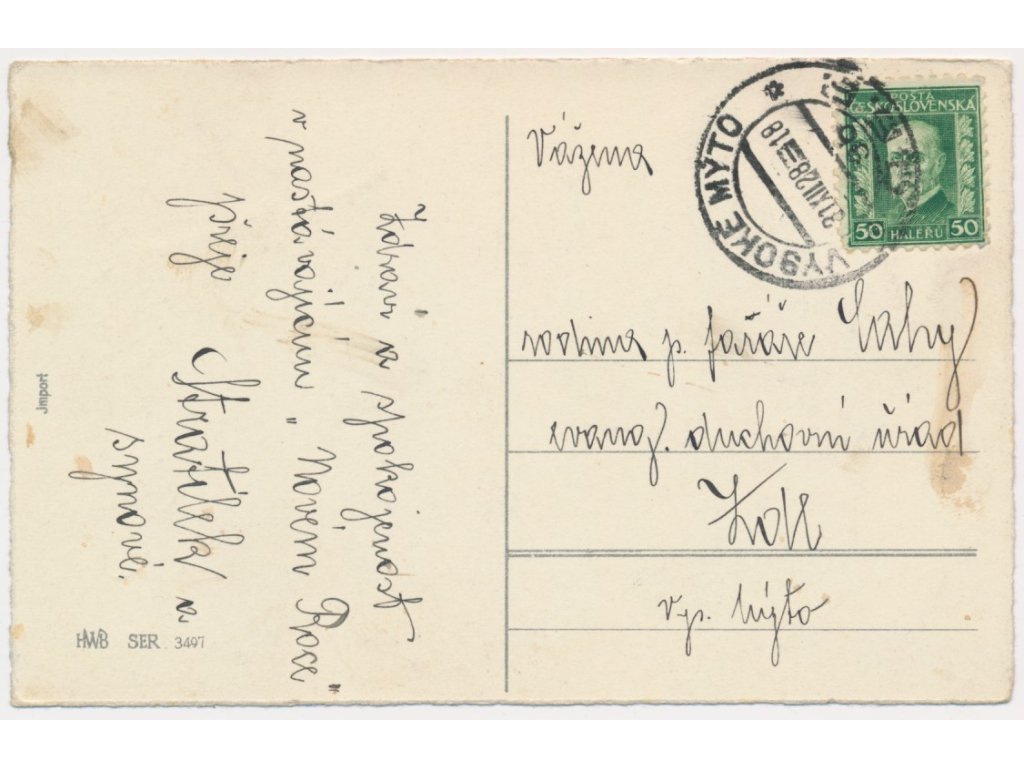 Zdraví a spokojenost
v nastávajícím „Novém Roce"
přeje
a
synové.
Import
HWB SER. 3497
Vážená
rodina p. faráře
evang. duchovní úřad
vys. Mýto
VYSOKÉ MÝTO
31.XII.28 18
POSTA
ČESKOSLOVENSKÁ
50 HALÉŘŮ 50